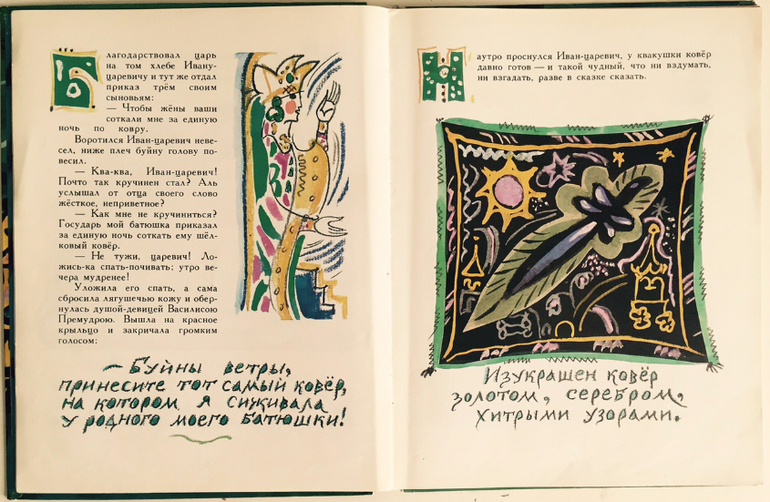 Благодарствовал царь
на том хлебе Ивану-
царевичу и тут же отдал
приказ трём своим
сыновьям:
— Чтобы жёны ваши
соткали мне за единую
ночь по ковру.
Воротился Иван-царевич неве-
сел, ниже плеч буйну голову по-
весил.
— Ква-ква, Иван-царевич!
Почто так кручинен стал? Аль
услышал от отца своего слово
жёсткое, неприветное?
— Как мне не кручиниться?
Государь мой батюшка приказал
за единую ночь соткать ему шёл-
ковый ковёр.
— Не тужи, царевич! Ло-
жись-ка спать-почивать: утро ве-
чера мудренее!
Уложила его спать, а сама
сбросила лягушечью кожу и обер-
нулась душой-девицей Василисою
Премудрою. Вышла на красное
крыльцо и закричала громким
голосом:
— Буйны ветры,
принесите тот самый ковёр,
на котором я сиживала
у родного моего батюшки!
Наутро проснулся Иван-царевич, у квакушки ковёр
давно готов — и такой чудный, что ни вздумать,
ни взгадать, разве в сказке сказать.
Изукрашен ковёр
золотом, серебром,
хитрыми узорами.